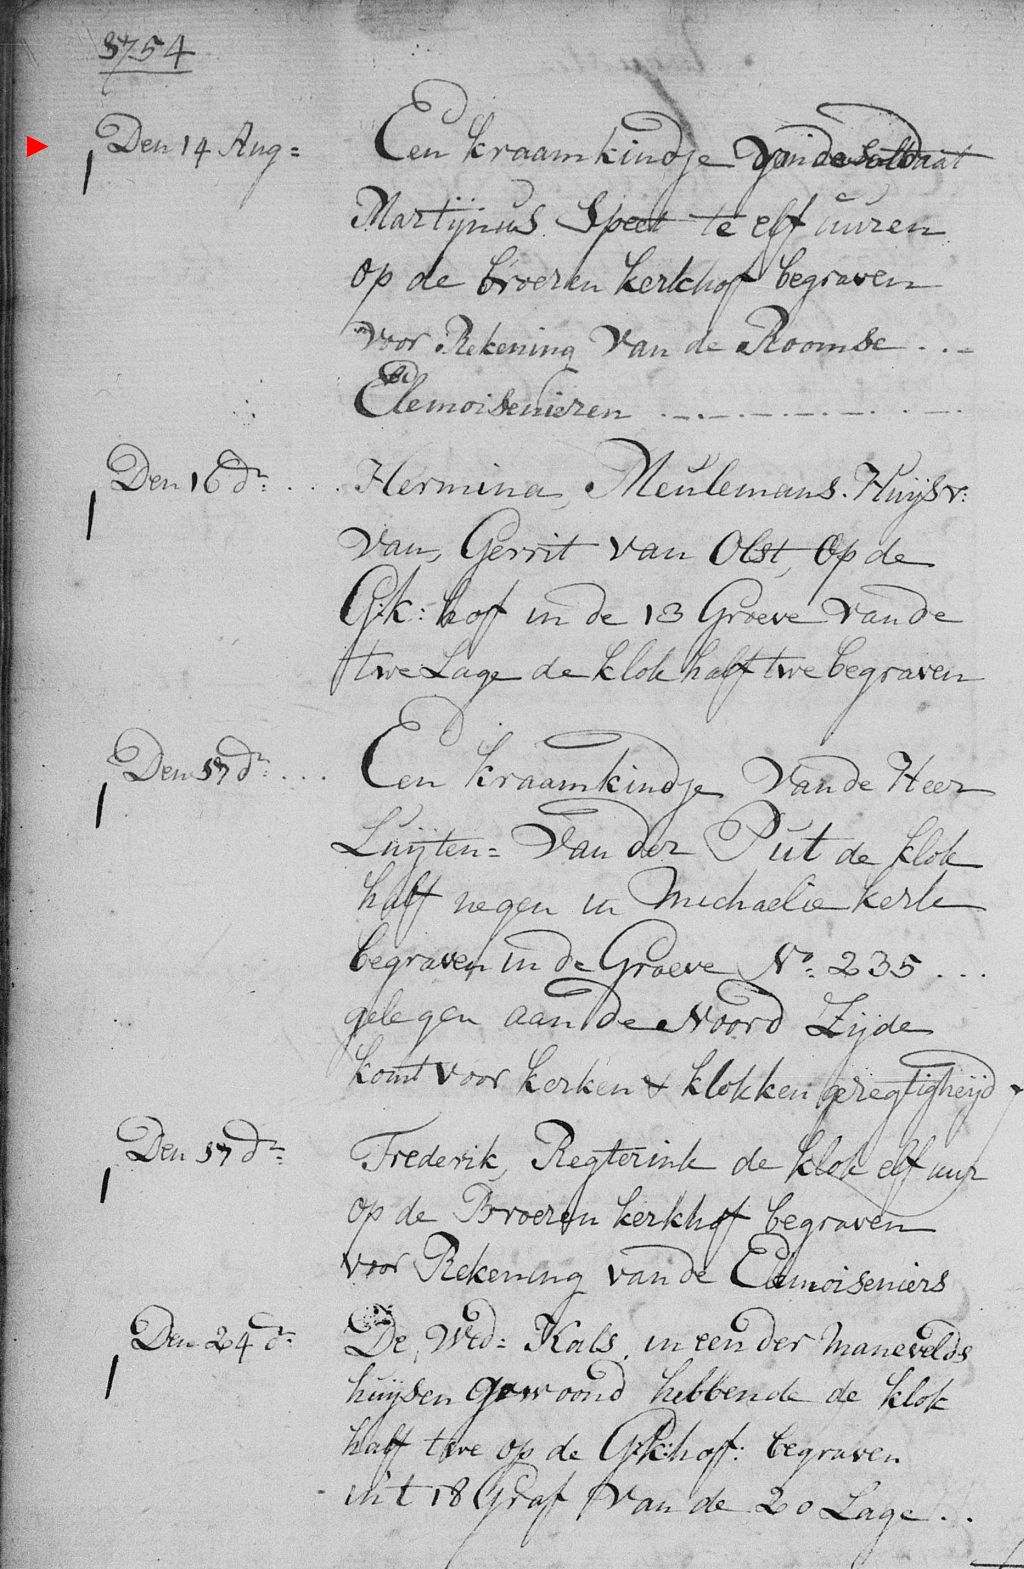 1754
Den 14 Aug= Een kraamkindje van de Soldaat
Martijnus Speet te elf uuren
op de broeren kerkhof begraven
voor Rekening van de Roomse . . -
Elemoisenieren
Den 16 do: . . . . Hermina, Meulemans. Huijsv:
van, Gerrit van Olst, Op de
G:k: hof in de 13 Groeve van de
twe Lage de klok half twe begraven
Den 17 do: . . . . Een kraamkindje van de Heer
Luijten= van der Put de klok
half negen in Michaelie kerk
begraven in de Groeve No: 235 . . .
gelegen aan de Noord Zijde
komt voor kerken & klokken geregtigheijd
Den 17 do= Frederik, Regterink de klok elf uur
op de Broeren kerkhof begraven
voor Rekening van de Elemoiseniers
Den 24 do: De, Wed: Kals, in een der Manevelds
huijsen gewoond hebbende de klok
half twe op de G:k:hof: begraven
int 18 Graf van de 20 Lage . .